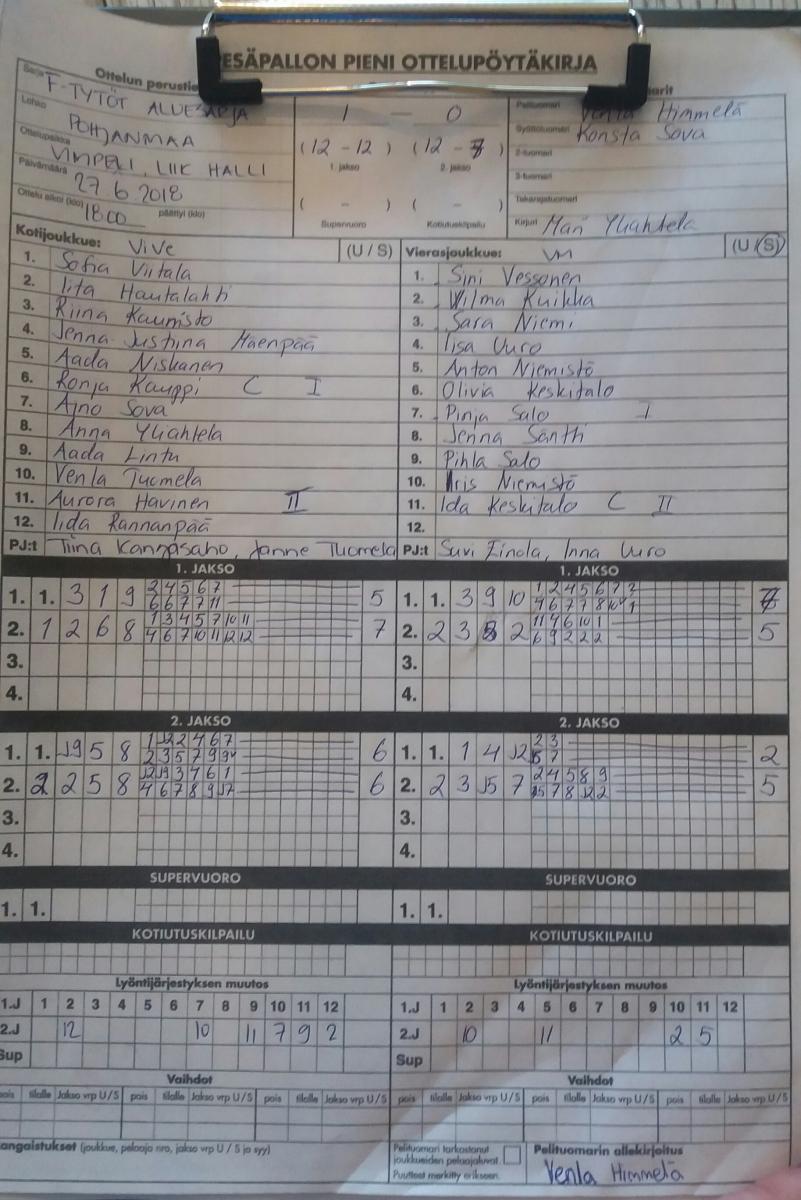 ESÄPALLON PIENI OTTELUPÖYTÄKIRJA
Ottelun perustie
Sarja F-TYTÖT ALUESARJA
Lohko POHJANMAA
Ottelupaikka VIMPELI, LIIK HALLI
Päivämäärä 27.6.2018
Ottelu alkoi (klo) 18.00 päättyi (klo)
1 — 0
(12 - 12) (12 - 7)
1. jakso 2. jakso
( - ) ( - )
Supervuoro Kotiutuskilpailu
arit
Pelituomari Venla Himmelä
Syöttötuomari Konsta Sova
2-tuomari
3-tuomari
Takarajatuomari
Kirjuri Mari Yliahtela
Kotijoukkue: ViVe (U / S)
1. Sofia Viitala
2. Iita Hautalahti
3. Riina Kaunisto
4. Jenna Justiina Mäenpää
5. Aada Niskanen
6. Ronja Kauppi C I
7. Aino Sova
8. Anna Yliahtela
9. Aada Lintu
10. Venla Tuomela
11. Aurora Havinen II
12. Iida Rannanpää
PJ:t Tiina Kangasaho, Janne Tuomela
Vierasjoukkue: VM (U / S)
1. Sini Vessonen
2. Wilma Kuikka
3. Sara Niemi
4. Iisa Uuro
5. Anton Niemistö
6. Olivia Keskitalo
7. Pinja Salo I
8. Jenna Säntti
9. Pihla Salo
10. Iris Niemistö
11. Ida Keskitalo C II
12.
PJ:t Suvi Einola, Inna Uuro
1. JAKSO
1. 1. 3 1 9 2 4 5 6 7 5
6 6 7 7 11
2. 1 2 6 8 1 3 4 5 7 10 11 7
4 6 7 10 11 12 12
3.
4.
1. JAKSO
1. 1. 3 9 10 1 2 4 5 6 7 2 7
4 6 7 7 8 10 1
2. 2 3 8 2 11 4 6 10 1 5
6 9 2 2 2
3.
4.
2. JAKSO
1. 1. 5 8 6
2. 2 2 5 8 6
4 6 7 8 9
3.
4.
2. JAKSO
1. 1. 1 4 12 2 3 2
2. 2 3 7 2 4 5 8 9 5
3.
4.
SUPERVUORO
1. 1.
SUPERVUORO
1. 1.
KOTIUTUSKILPAILU
KOTIUTUSKILPAILU
Lyöntijärjestyksen muutos
1.J 1 2 3 4 5 6 7 8 9 10 11 12
2.J 12 10 11 7 9 2
Sup
Lyöntijärjestyksen muutos
1.J 1 2 3 4 5 6 7 8 9 10 11 12
2.J 10 11 2 5
Sup
Vaihdot
pois tilalle Jakso vrp U/S pois tilalle Jakso vrp U/S pois tilalle Jakso vrp U/S
Vaihdot
pois tilalle Jakso vrp U/S pois tilalle Jakso vrp U/S pois tilalle Jakso vrp U/S
angaistukset (joukkue, pelaaja nro, jakso vrp U / S ja syy)
Pelituomari tarkastanut
joukkueiden pelaajaluvat.
Puutteet merkitty erikseen.
Pelituomarin allekirjoitus
Venla Himmelä